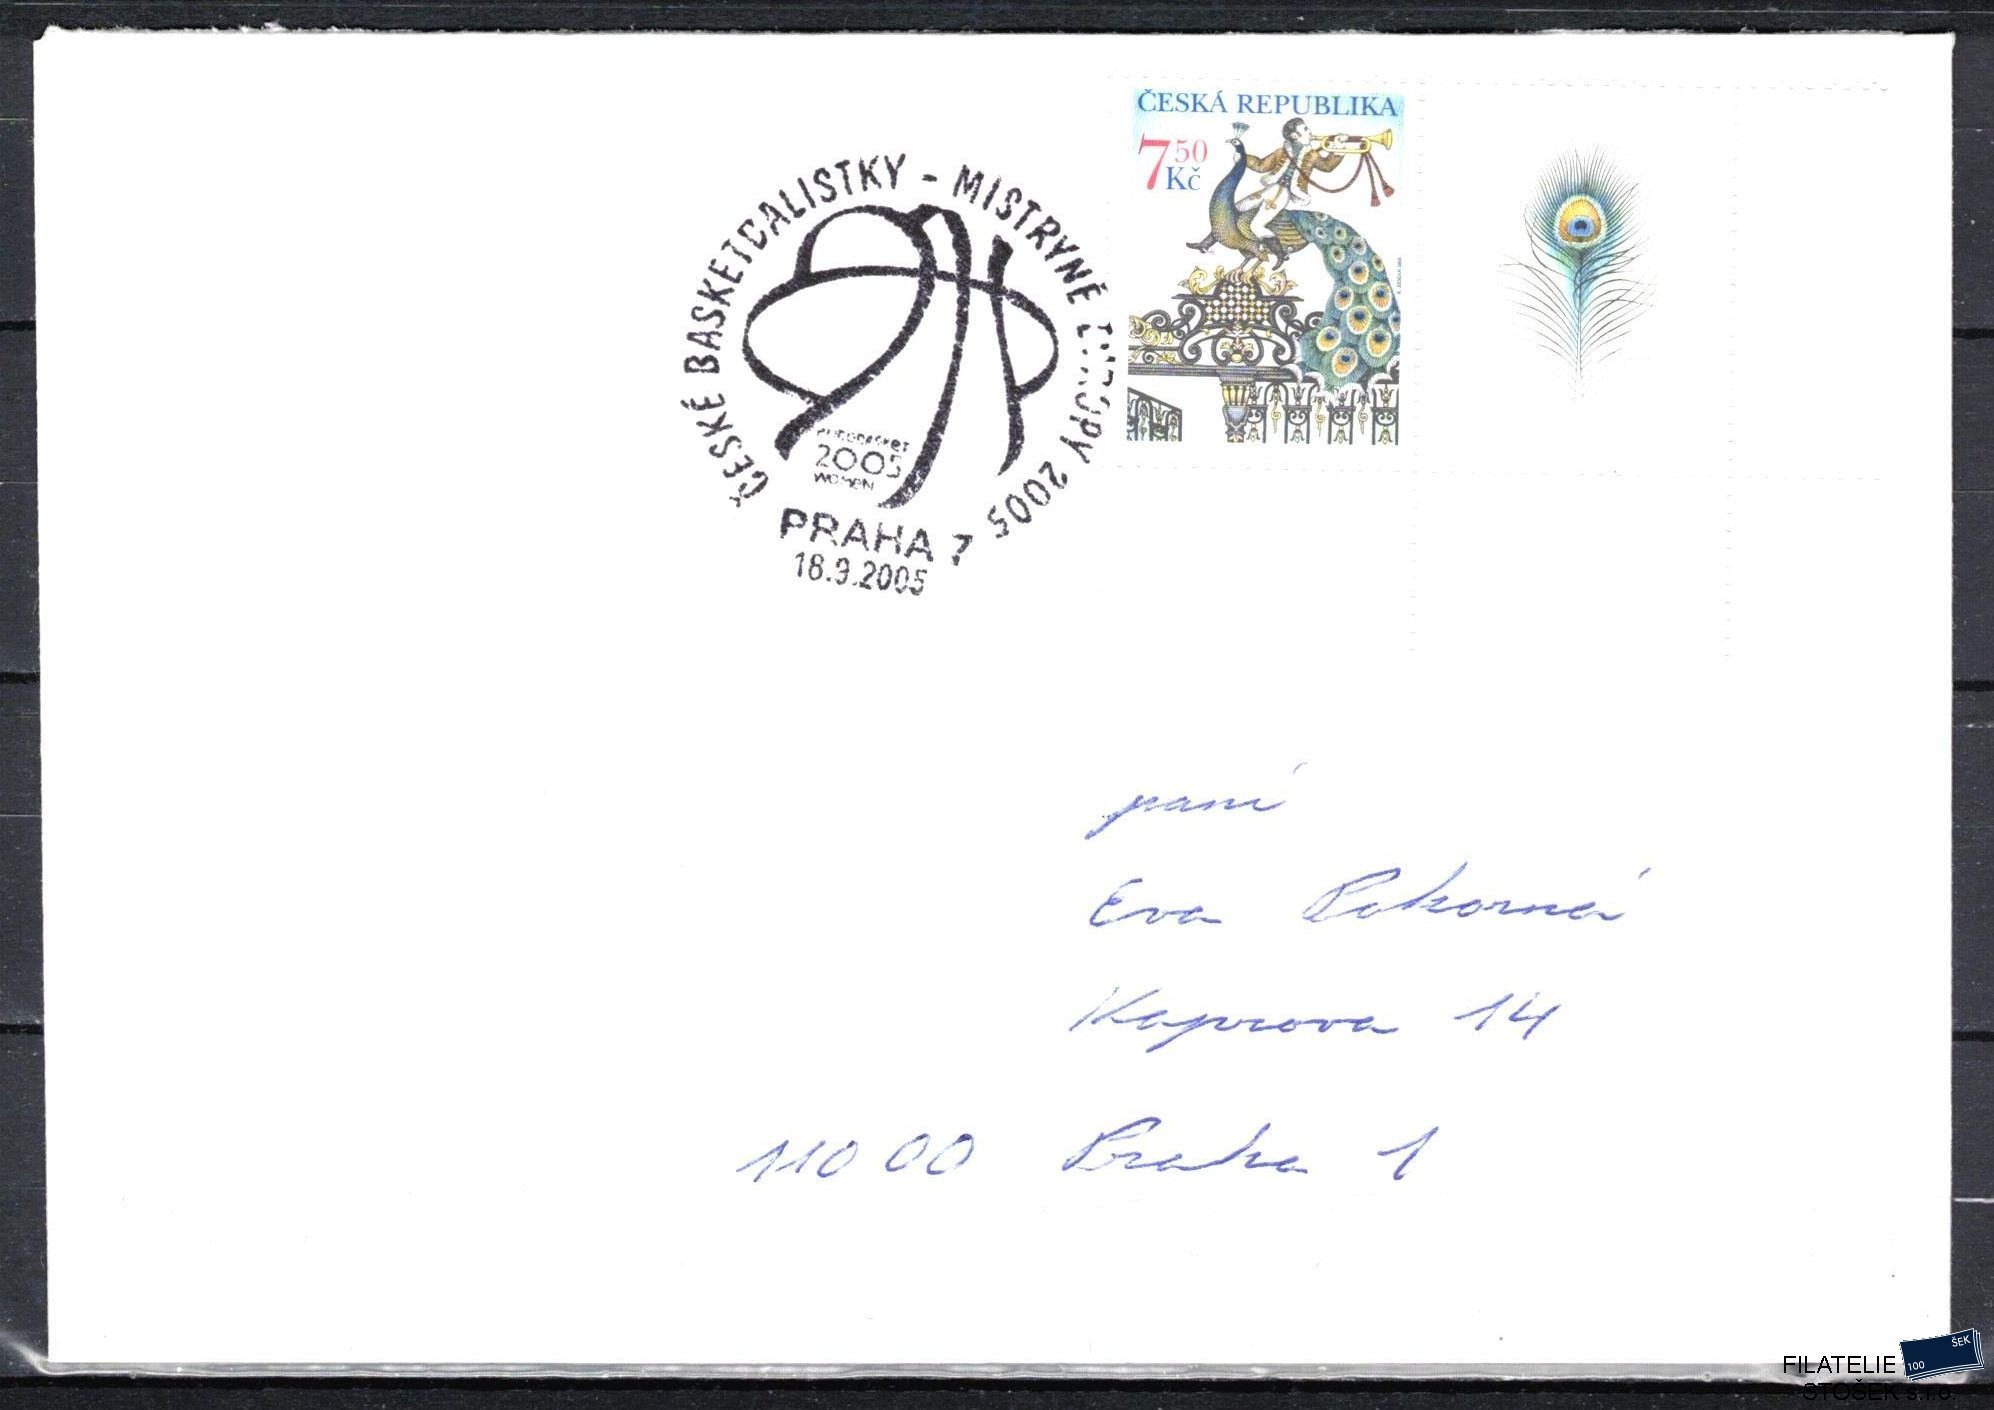 ČESKÁ REPUBLIKA
7 50
Kč
ČESKÉ BASKETBALISTKY - MISTRYNĚ EVROPY 2005
EUROBASKET
2005
WOMEN
PRAHA 7
18.9.2005
paní
Eva Pokorná
Kaprova 14
110 00 Praha 1
ŠEK
100
FILATELIE
STOŠEK s.r.o.